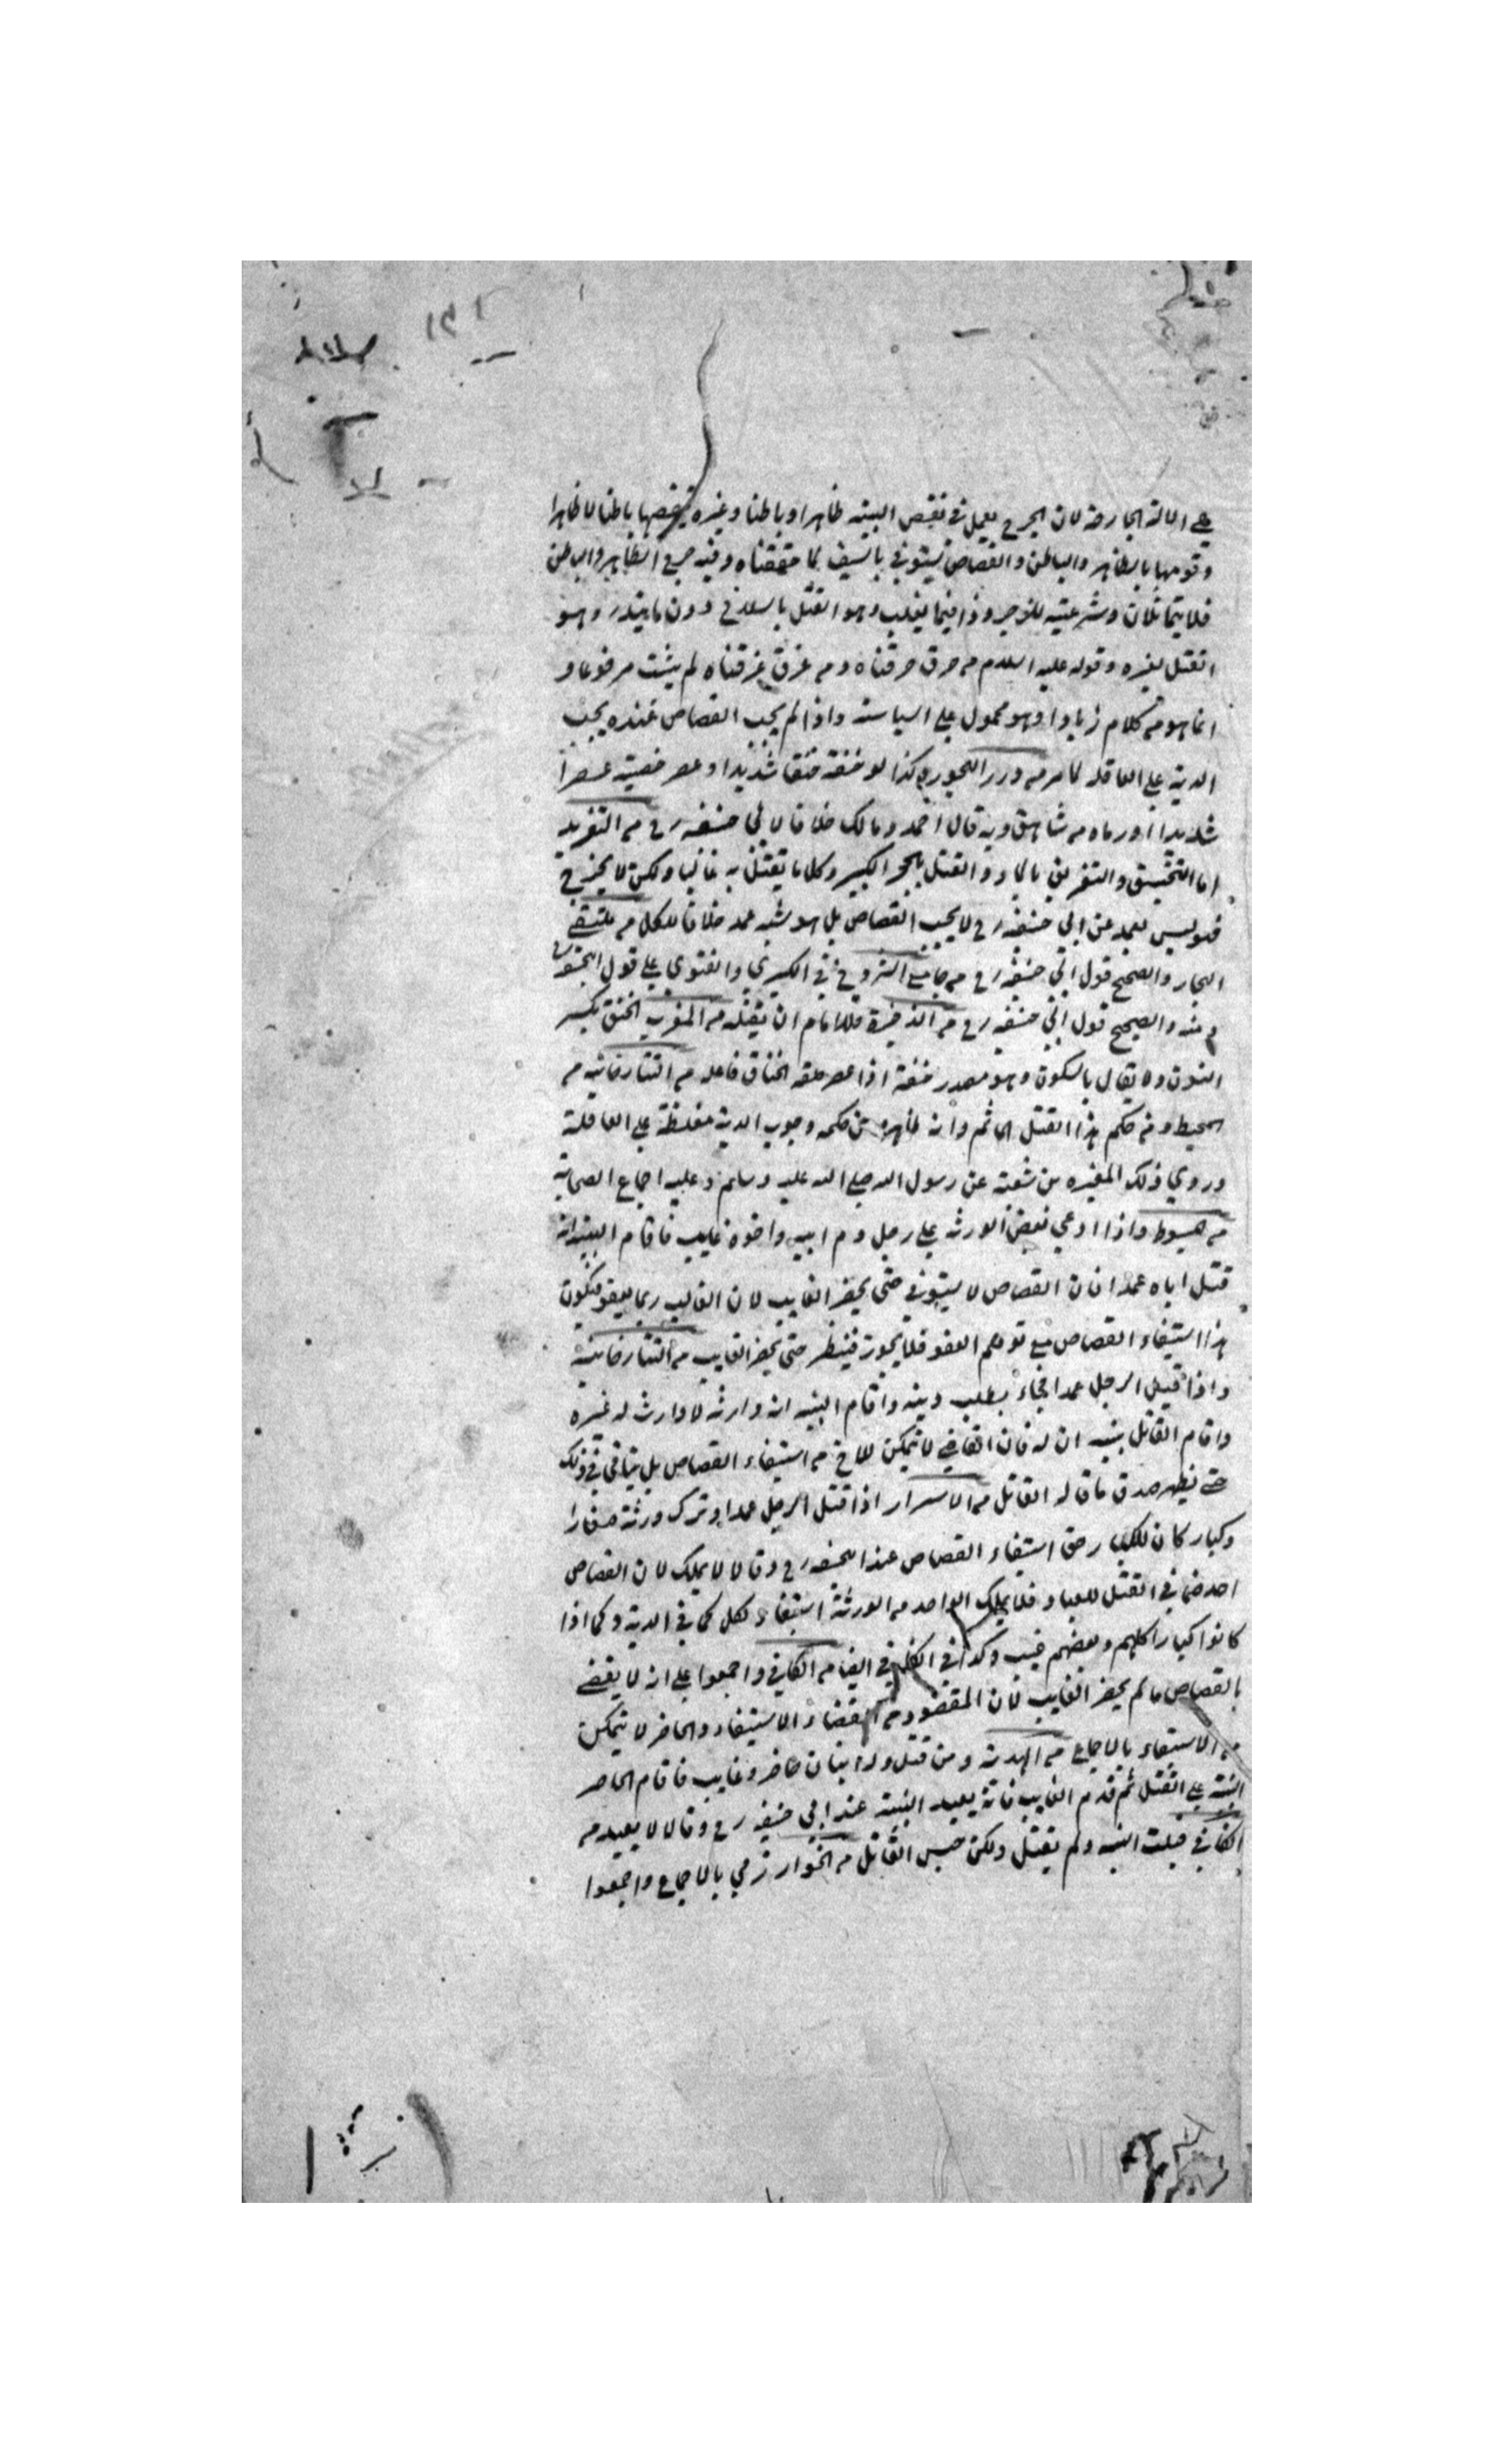 على الالة الجارحة لان الجرح يعمل في نقض البنية ظاهرا وباطنا وغيره ينقضها باطنا لا ظاهرا
وقومها بالظاهر والباطن والقصاص يستوفي بالسيف لما حققناه وفيه جرح الظاهر والباطن
فلا يتماثلان وشرعيته للزجر وذا فيما يغلب وهو القتل بالسلاح دون ما يندر وهو
القتل بغيره وقوله عليه السلام من حرق حرقناه ومن غرق غرقناه لم يثبت مرفوعا و
انما هو من كلام زياد او هو محمول على السياسة واذا لم يجب القصاص عنده يجب
الدية على العاقلة كما مر من درر البحور وكذا لو خنقه خنقا شديدا وعصر خصيته عصرا
شديدا او رماه من شاهق وبه قال احمد ومالك خلافا لابي حنيفه رح من التفريد
اما التخنيق والتغريق بالماء والقتل بالحجر الكبير وكل ما يقتل به غالبا ولكن لا يجرح
فهو ليس بعمد عن ابي حنيفه رح لا يجب القصاص بل هو شبه عمد خلافا للكل من ملتقى
البحار والصحيح قول ابي حنيفه رح من جامع الشروح في الكبري والفتوي على قول
والصحيح قول ابي حنيفه رح من الذخيرة فللامام ان يقتله من المغرب الخنق بكسر
النون ولا يقال بالسكون وهو مصدر خنقه اذا عصر حلقه الخناق فاعله من التتارخانيه من
المحيط ومن حكم هذا القتل الماثم وانه ظاهر ومن حكمه وجوب الدية مغلظة على العاقلة
وروي ذلك المغيره بن شعبة عن رسول الله صلى الله عليه وسلم وعليه اجماع الصحابة
من مبسوط واذا ادعي بعض الورثه على رجل دم ابيه واخوه غايب فاقام البينة انه
قتل اباه عمدا فان القصاص لا يستوفي حتى يحضر الغايب لان الغايب ربما يعفو فيكون
هذا استيفاء القصاص مع توهم العفو فلا يجوز فينظر حتى يحضر الغايب من التتارخانية
واذا قتل الرجل عمدا فجاء يطلب دينه واقام البينه انه وارثه لا وارث له غيره
واقام القاتل بينه ان له فان القاضي لا يمكن للاخ من استيفاء القصاص بل يتاني في ذلك
حتى يظهر صدق ما قاله القاتل من الاسرار اذا قتل الرجل عمدا وترك ورثة صغارا
وكبار كان للكبار حق استيفاء القصاص عند ابيحنيفه رح وقالا لا يملك لان القصاص
احد ضماني القتل للعباد فلا يملك الواحد من الورثة استيفاء كل كما في الدية وكما اذا
كانوا كبارا كلهم وبعضهم غيب وكذا في الكافي ايضا من الكافي واجمعوا على انه لا يقضي
بالقصاص ما لم يحضر الغايب لان المقصود من القضاء الاستيفاء والحاضر لا يتمكن
من الاستيفاء بالاجماع من الهدية ومن قتل وله ابنان حاضر وغايب فاقام الحاضر
البينة على القتل ثم قدم الغايب فانه يعيد البينة عند ابي حنيفه رح وقالا لا يعيد من
الكافي قبلت البينه ولم يقتل ولكن حبس القاتل من الخوارزمي بالاجماع واجمعوا